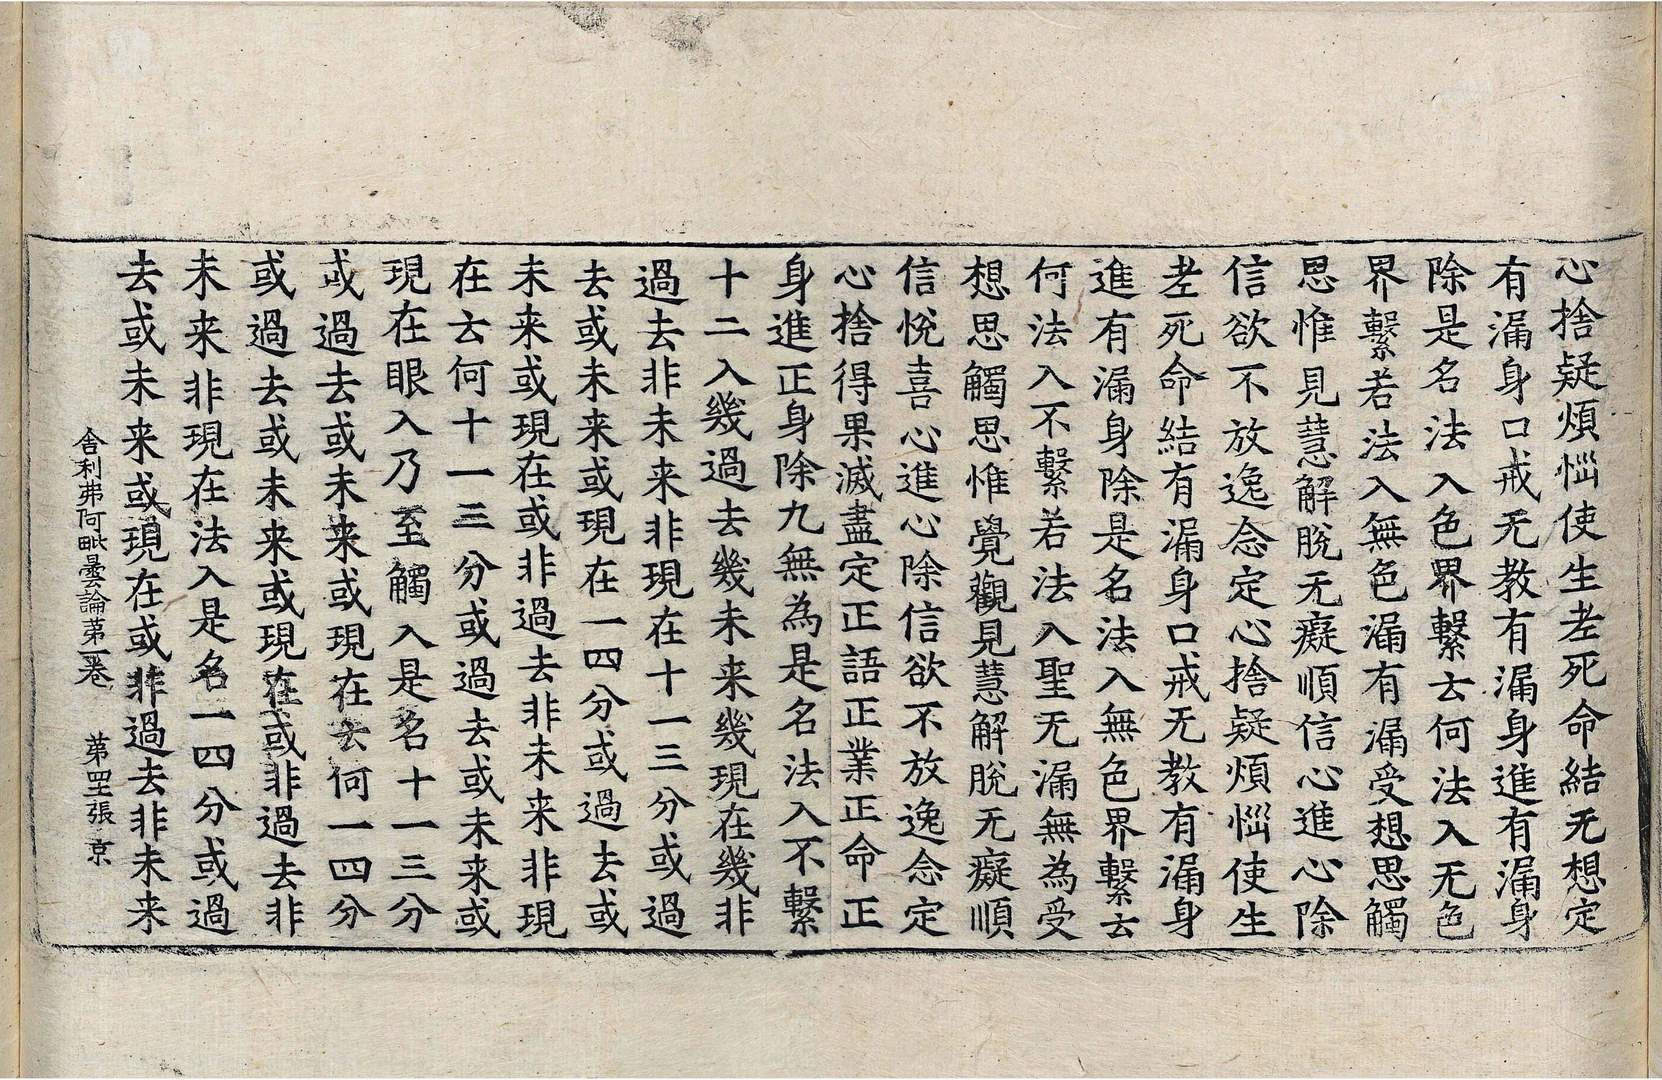 心捨疑煩惱使生老死命結无想定
有漏身口戒无教有漏身進有漏身
除是名法入色界繫云何法入无色
界繫若法入無色漏有漏受想思觸
思惟見慧解脫无癡順信心進心除
信欲不放逸念定心捨疑煩惱使生
老死命結有漏身口戒无教有漏身
進有漏身除是名法入無色界繫云
何法入不繫若法入聖无漏無為受
想思觸思惟覺觀見慧解脫无癡順
信悅喜心進心除信欲不放逸念定
心捨得果滅盡定正語正業正命正
身進正身除九無為是名法入不繫
十二入幾過去幾未来幾現在幾非
過去非未来非現在十一三分或過
去或未来或現在一四分或過去或
未来或現在或非過去非未来非現
在云何十一三分或過去或未来或
現在眼入乃至觸入是名十一三分
或過去或未来或現在云何一四分
或過去或未来或現在或非過去非
未来非現在法入是名一四分或過
去或未来或現在或非過去非未来
舍利弗阿毗曇論第一卷 第張 京